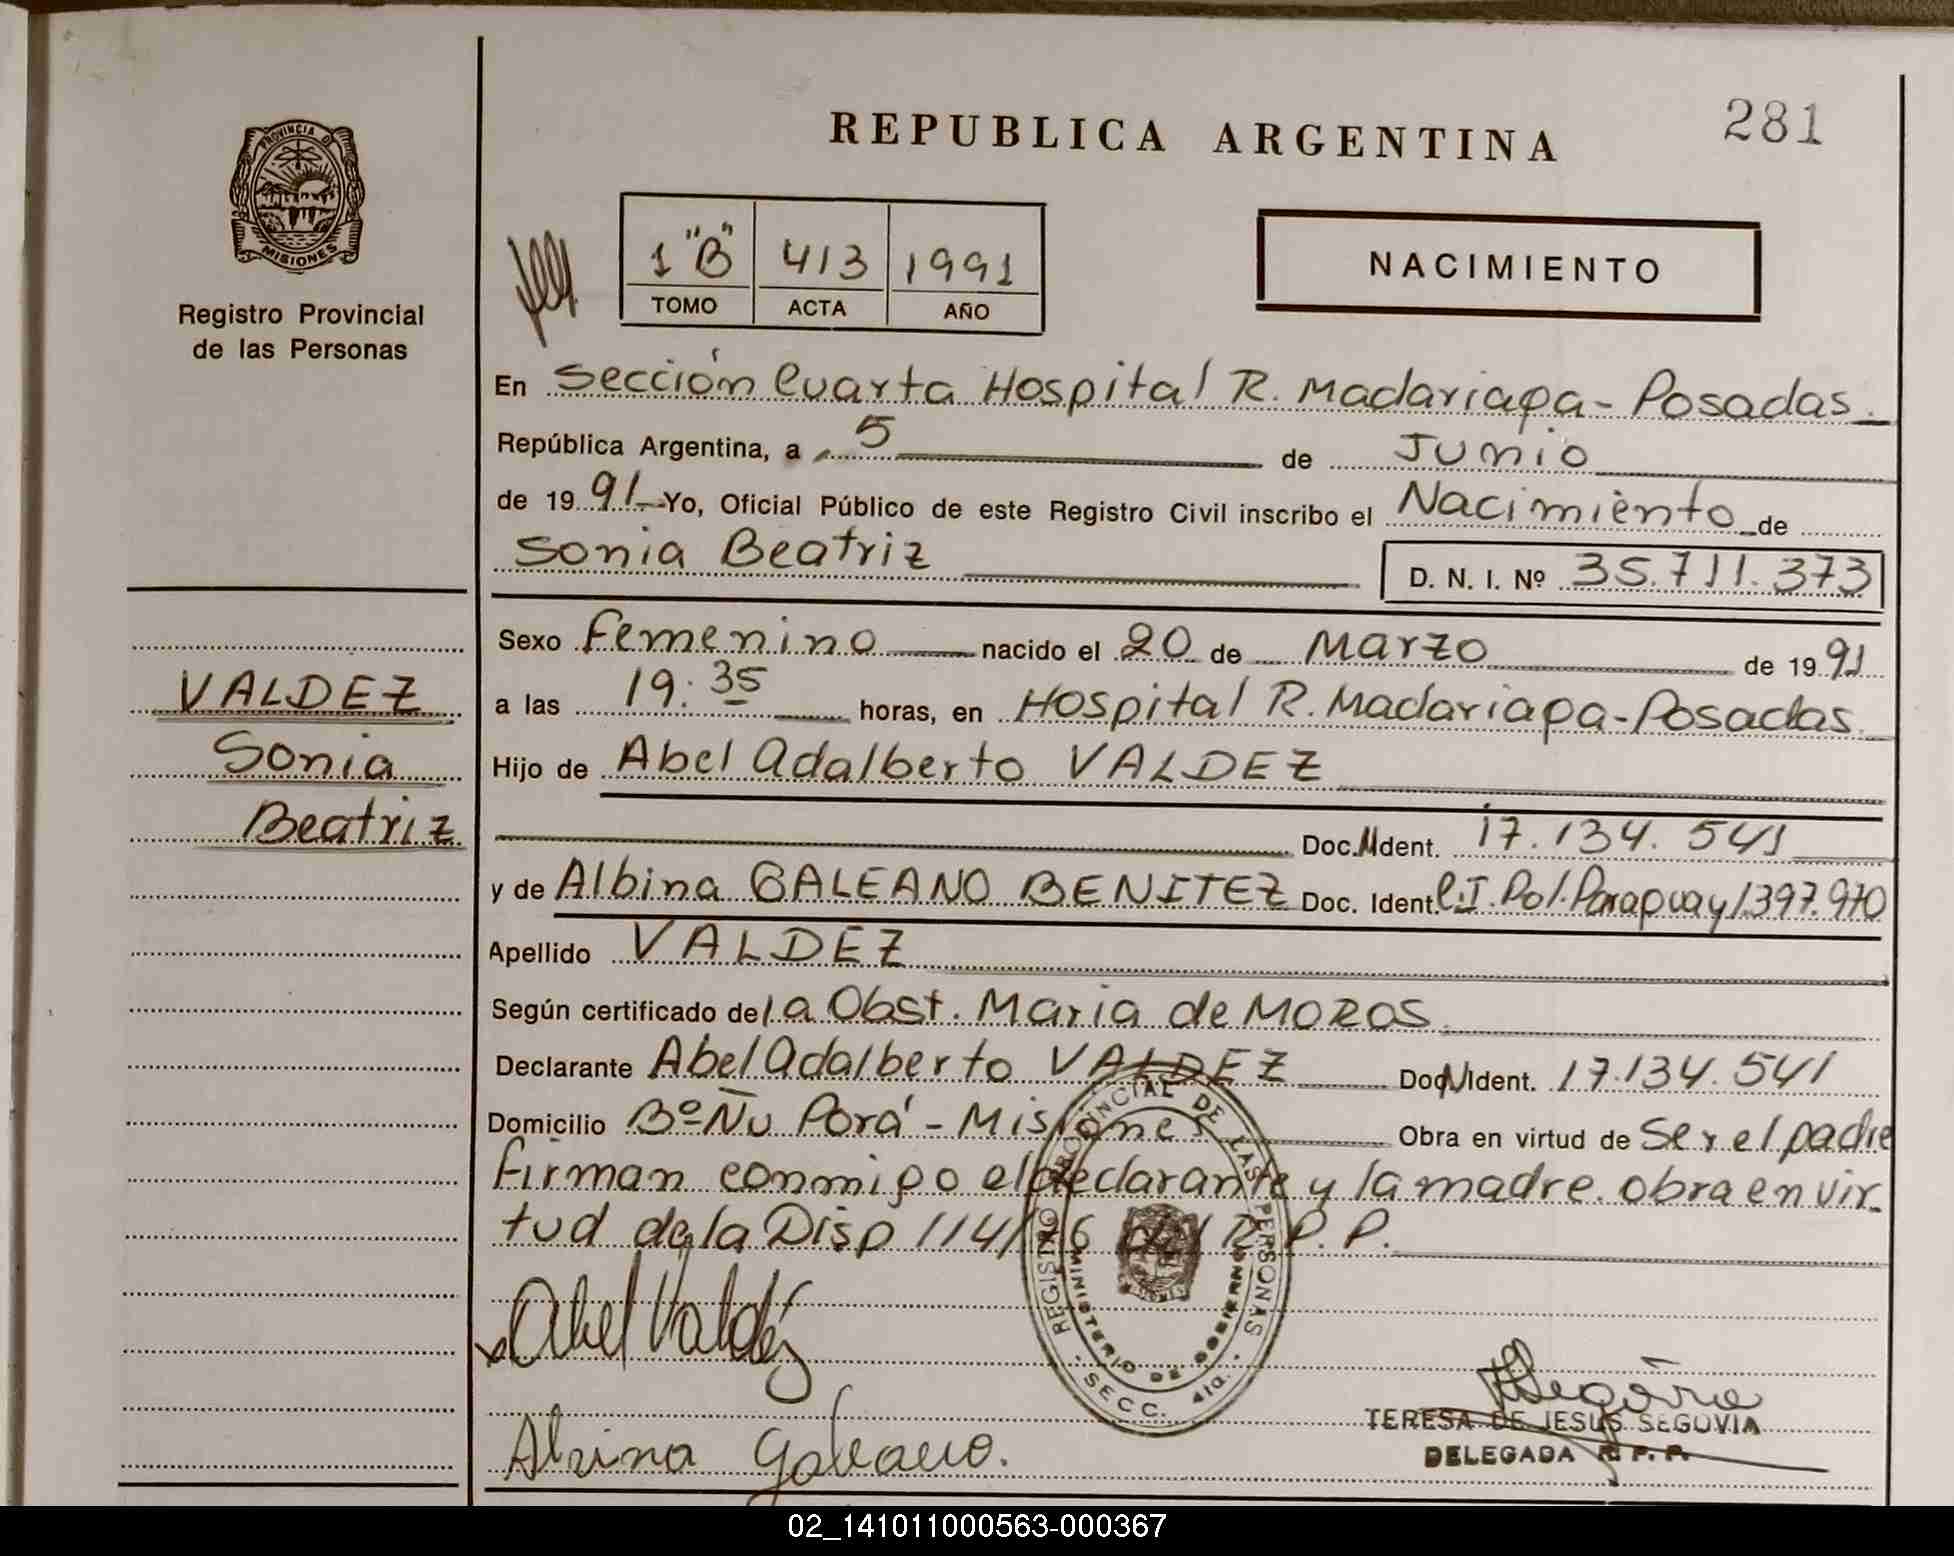 REPUBLICA ARGENTINA
281
PROVINCIA D
MISIONES
Registro Provincial
de las Personas
1 "B" 413 1991
TOMO ACTA AÑO
NACIMIENTO
En Sección Cuarta Hospital R. Madariaga - Posadas.
República Argentina, a 5 de Junio
de 1991 Yo, Oficial Público de este Registro Civil inscribo el Nacimiento de
Sonia Beatriz D. N. I. Nº 35.711.373
Sexo Femenino nacido el 20 de Marzo de 1991
VALDEZ
Sonia
Beatriz
a las 19:35 horas, en Hospital R. Madariaga - Posadas.
Hijo de Abel Adalberto VALDEZ
Doc. Ident. 17.134.541
y de Albina GALEANO BENITEZ Doc. Ident. C.I. Pol. Paraguay 1397.970
Apellido VALDEZ
Según certificado de la Obst. Maria de MOROS
Declarante Abel Adalberto VALDEZ Doc. Ident. 17.134.541
Domicilio Bº Ñu Porá - Misiones Obra en virtud de Ser el padre
Firman conmigo el declarante y la madre. obra en vir
tud de la Disp 114/76 R. P. P.
Abel Valdéz
Albina Galeano.
REGISTRO PROVINCIAL DE LAS PERSONAS
MINISTERIO DE GOBIERNO
SECC. 4ta.
Segovia
TERESA DE JESUS SEGOVIA
DELEGADA R. P. P.
02_141011000563-000367